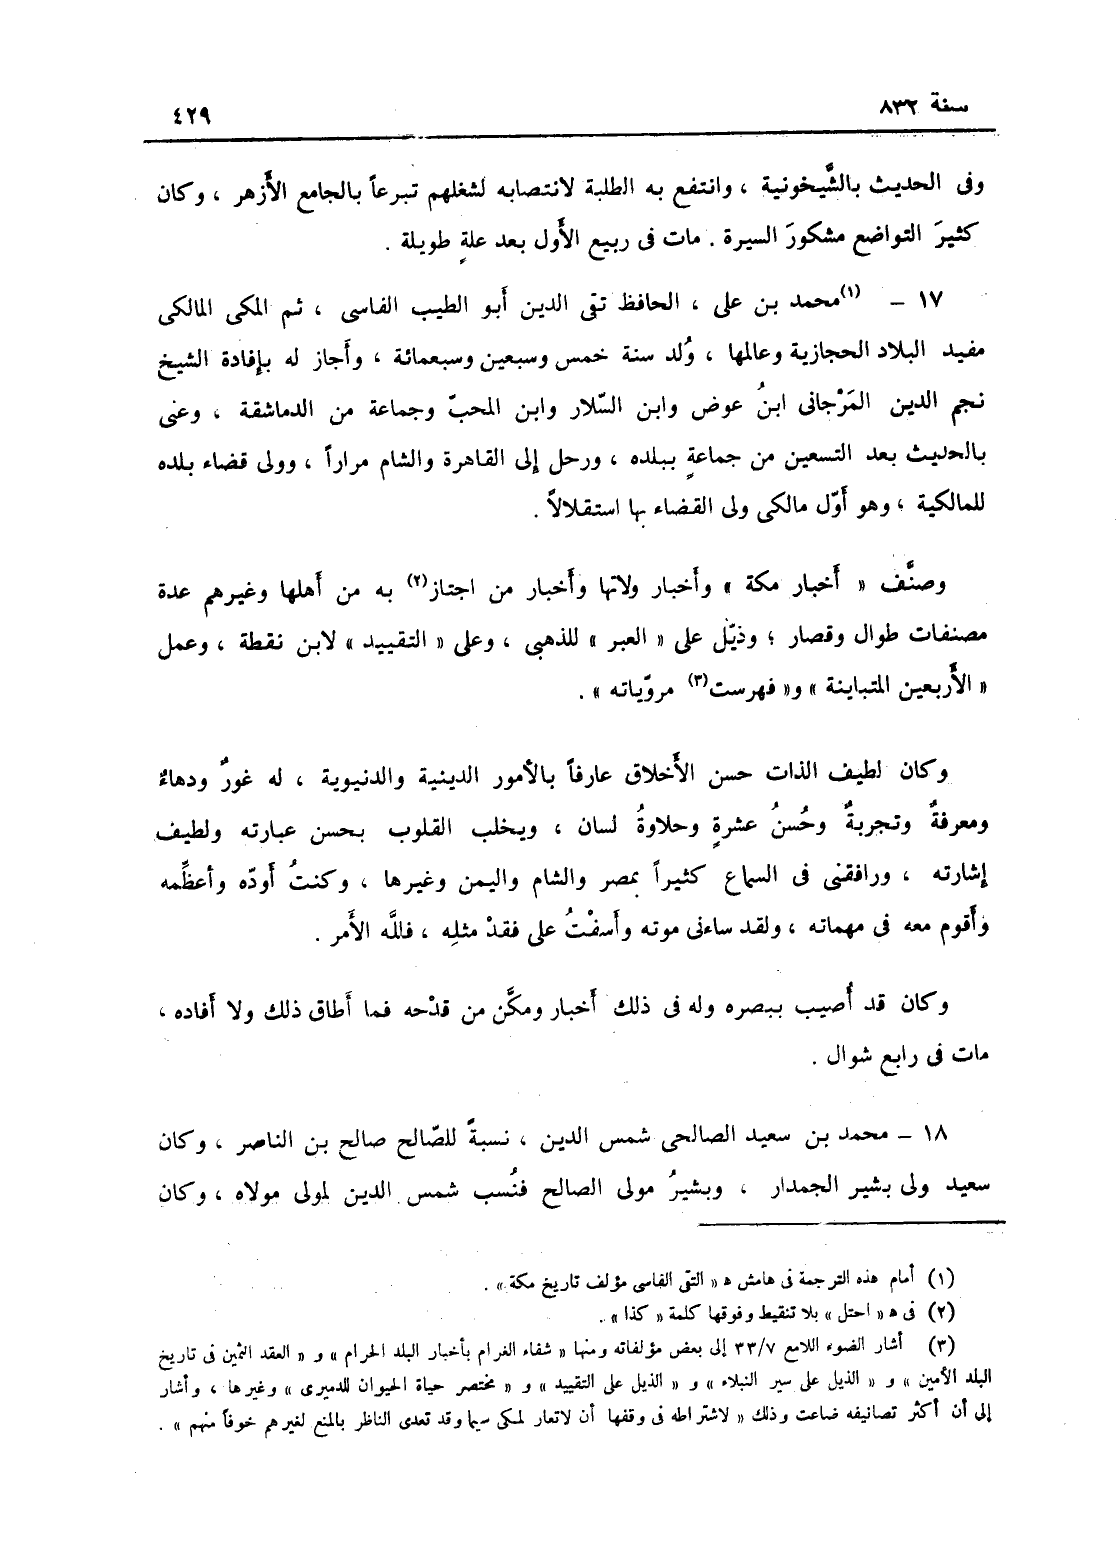 سنة ٨٣٢
٤٢٩
وفى الحديث بالشَّيخونية ، وانتفع به الطلبة لانتصابه لشغلهم تبرعاً بالجامع الأزهر ، وكان
كثيرَ التواضع مشكورَ السيرة . مات فى ربيع الأول بعد علةٍ طويلة .
١٧ – (١)محمد بن على ، الحافظ تقى الدين أبو الطيب الفاسى ، ثم المكى المالكى
مفيد البلاد الحجازية وعالمها ، وُلد سنة خمس وسبعين وسبعمائة ، وأجاز له بإفادة الشيخ
نجم الدين المَرْجانى ابنُ عوض وابن السّلار وابن المحبّ وجماعة من الدماشقة ، وعنى
بالحديث بعد التسعين من جماعةٍ ببلده ، ورحل إلى القاهرة والشام مراراً ، وولى قضاء بلده
للمالكية ، وهو أوّل مالكى ولى القضاء بها استقلالاً .
وصنَّف « أخبار مكة » وأخبار ولاتها وأخبار من اجتاز(٢) به من أهلها وغيرهم عدة
مصنفات طوال وقصار ؛ وذيّل على « العبر » للذهبى ، وعلى « التقييد » لابن نقطة ، وعمل
« الأربعين المتباينة » و« فهرست(٣) مرويّاته » .
وكان لطيف الذات حسن الأخلاق عارفاً بالأمور الدينية والدنيوية ، له غورٌ ودهاءٌ
ومعرفةٌ وتجربةٌ وحُسنُ عشرةٍ وحلاوةُ لسان ، ويخلب القلوب بحسن عبارته ولطيف
إشارته ، ورافقنى فى السماع كثيراً بمصر والشام واليمن وغيرها ، وكنتُ أودّه وأعظِّمه
وأقوم معه فى مهماته ، ولقد ساءنى موته وأسفْتُ على فقدْ مثلِه ، فللَّه الأمر .
وكان قد أُصيب ببصره وله فى ذلك أخبار ومكَّن من قدْحه فما أطاق ذلك ولا أفاده ،
مات فى رابع شوال .
١٨ – محمد بن سعيد الصالحى شمس الدين ، نسبةً للصّالح صالح بن الناصر ، وكان
سعيد ولى بشير الجمدار ، وبشيرُ مولى الصالح فنُسب شمس الدين لمولى مولاه ، وكان
(١) أمام هذه الترجمة فى هامش ﻫ « التقى الفاسى مؤلف تاريخ مكة » .
(٢) فى ﻫ « احتل » بلا تنقيط وفوقها كلمة « كذا » .
(٣) أشار الضوء اللامع ٣٣/٧ إلى بعض مؤلفاته ومنها « شفاء الغرام بأخبار البلد الحرام » و « العقد الثمين فى تاريخ
البلد الأمين » و « الذيل على سير النبلاء » و « الذيل على التقييد » و « مختصر حياة الحيوان للدميرى » وغيرها ، وأشار
إلى أن أكثر تصانيفه ضاعت وذلك « لاشتراطه فى وقفها أن لاتعار لمكى سيما وقد تعدى الناظر بالمنع لغيرهم خوفاً منهم » .